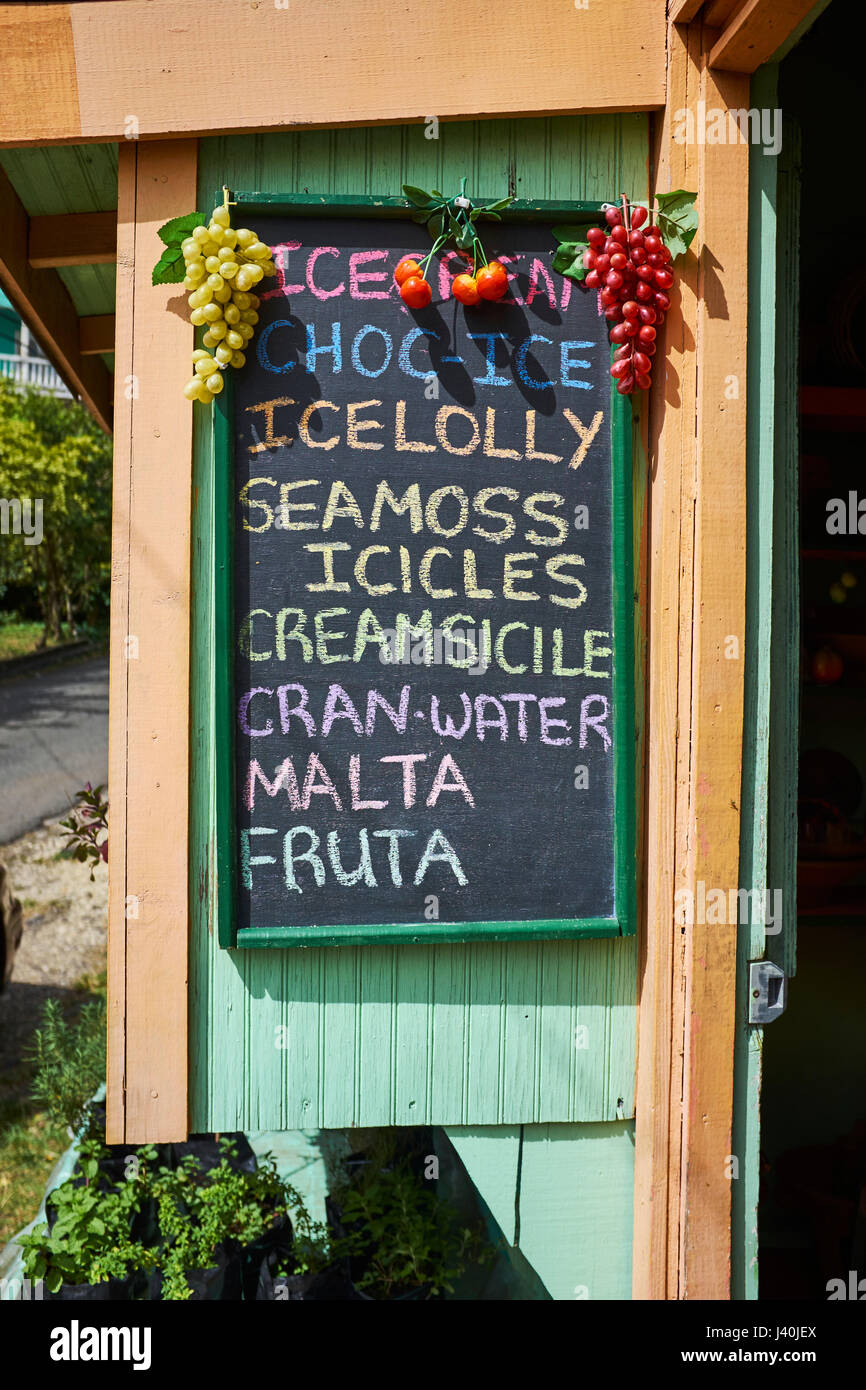 ICECREAM
CHOC-ICE
ICELOLLY
SEAMOSS
ICICLES
CREAMSICILE
CRAN-WATER
MALTA
FRUTA
alamy
Image ID: J40JEX
www.alamy.com